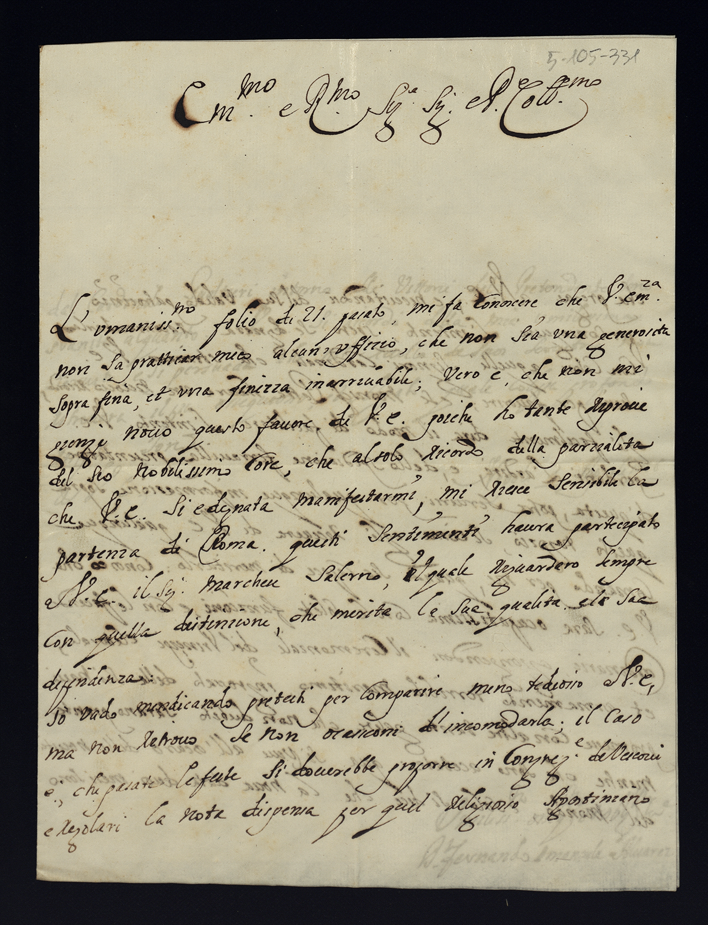 5-105-331
Em.mo e R.mo Sig.r Sig. e P.ne Coll.mo
L'umaniss.mo folio di 21. pasato, mi fa conoscere che V. em.za
non sa pratticar meco alcun'uffizio, che non sia una generosità
sopra fina, et una finezza inarrivabile; vero e, che non mi
giunge novo questo favore di V.e. poiche ho tante riprove
del suo nobilissimo core, che al solo ricordo della parzialita
che V.e. si e degnata manifestarmi, mi riesce sensibile la
partenza di Roma. questi sentimenti haura participato
a V.e. il Sig. Marchese Salerno, il quale riguardero sempre
con quella distinzione, che merita la sua qualita e la sua
dipendenza.
Io vado mendicando pretesti per comparire meno tedioso a V.e,
ma non ritrovo se non occasioni d'incomodarla; il caso
e', che pasate le feste si dovrebbe proporre in Congreg.e de Vescovi
e Regolari la nota dispensa per quel religioso Agostiniano
D. Fernando